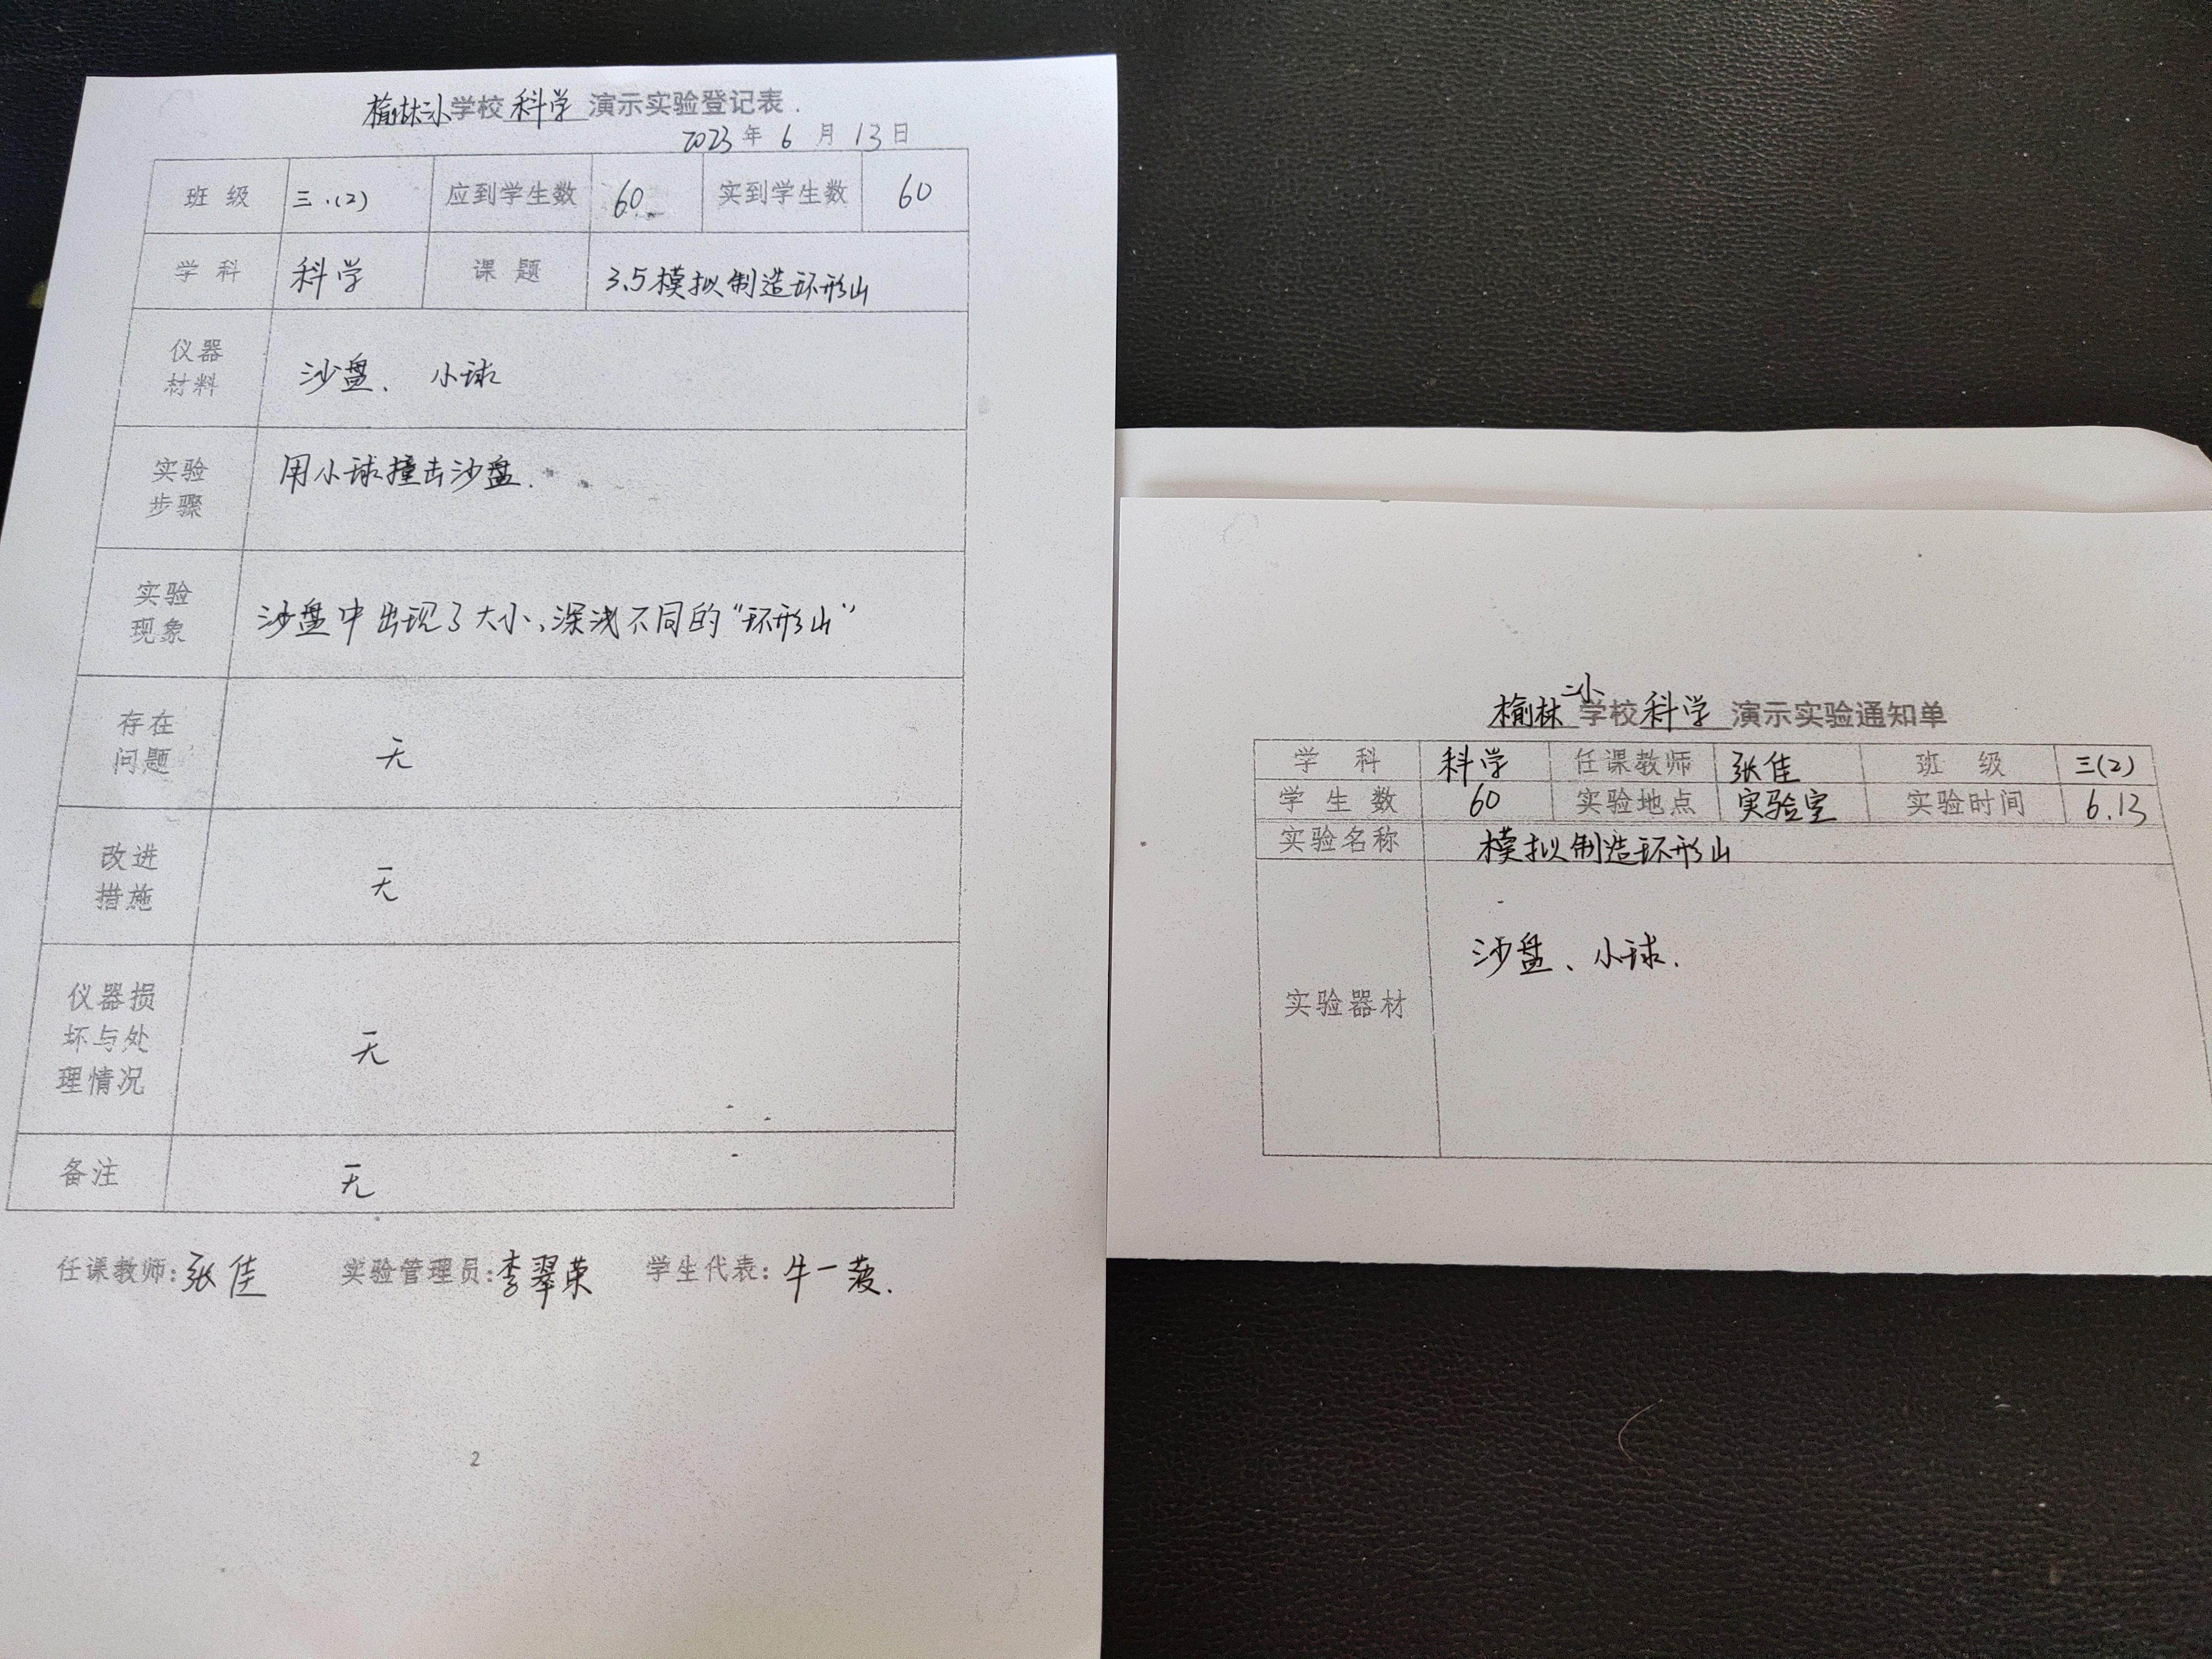 榆林二小学校科学演示实验登记表
2023年6月13日
班级 三.(2) 应到学生数 60 实到学生数 60
学科 科学 课题 3.5模拟制造环形山
仪器
材料
沙盘、小球
实验
步骤
用小球撞击沙盘.
实验
现象
沙盘中出现了大小、深浅不同的“环形山”
存在
问题
无
改进
措施
无
仪器损
坏与处
理情况
无
备注 无
任课教师:张佳 实验管理员:李翠荣 学生代表:牛一菠.
2
榆林二小学校科学演示实验通知单
学科 科学 任课教师 张佳 班级 三(2)
学生数 60 实验地点 实验室 实验时间 6.13
实验名称 模拟制造环形山
实验器材 沙盘、小球.